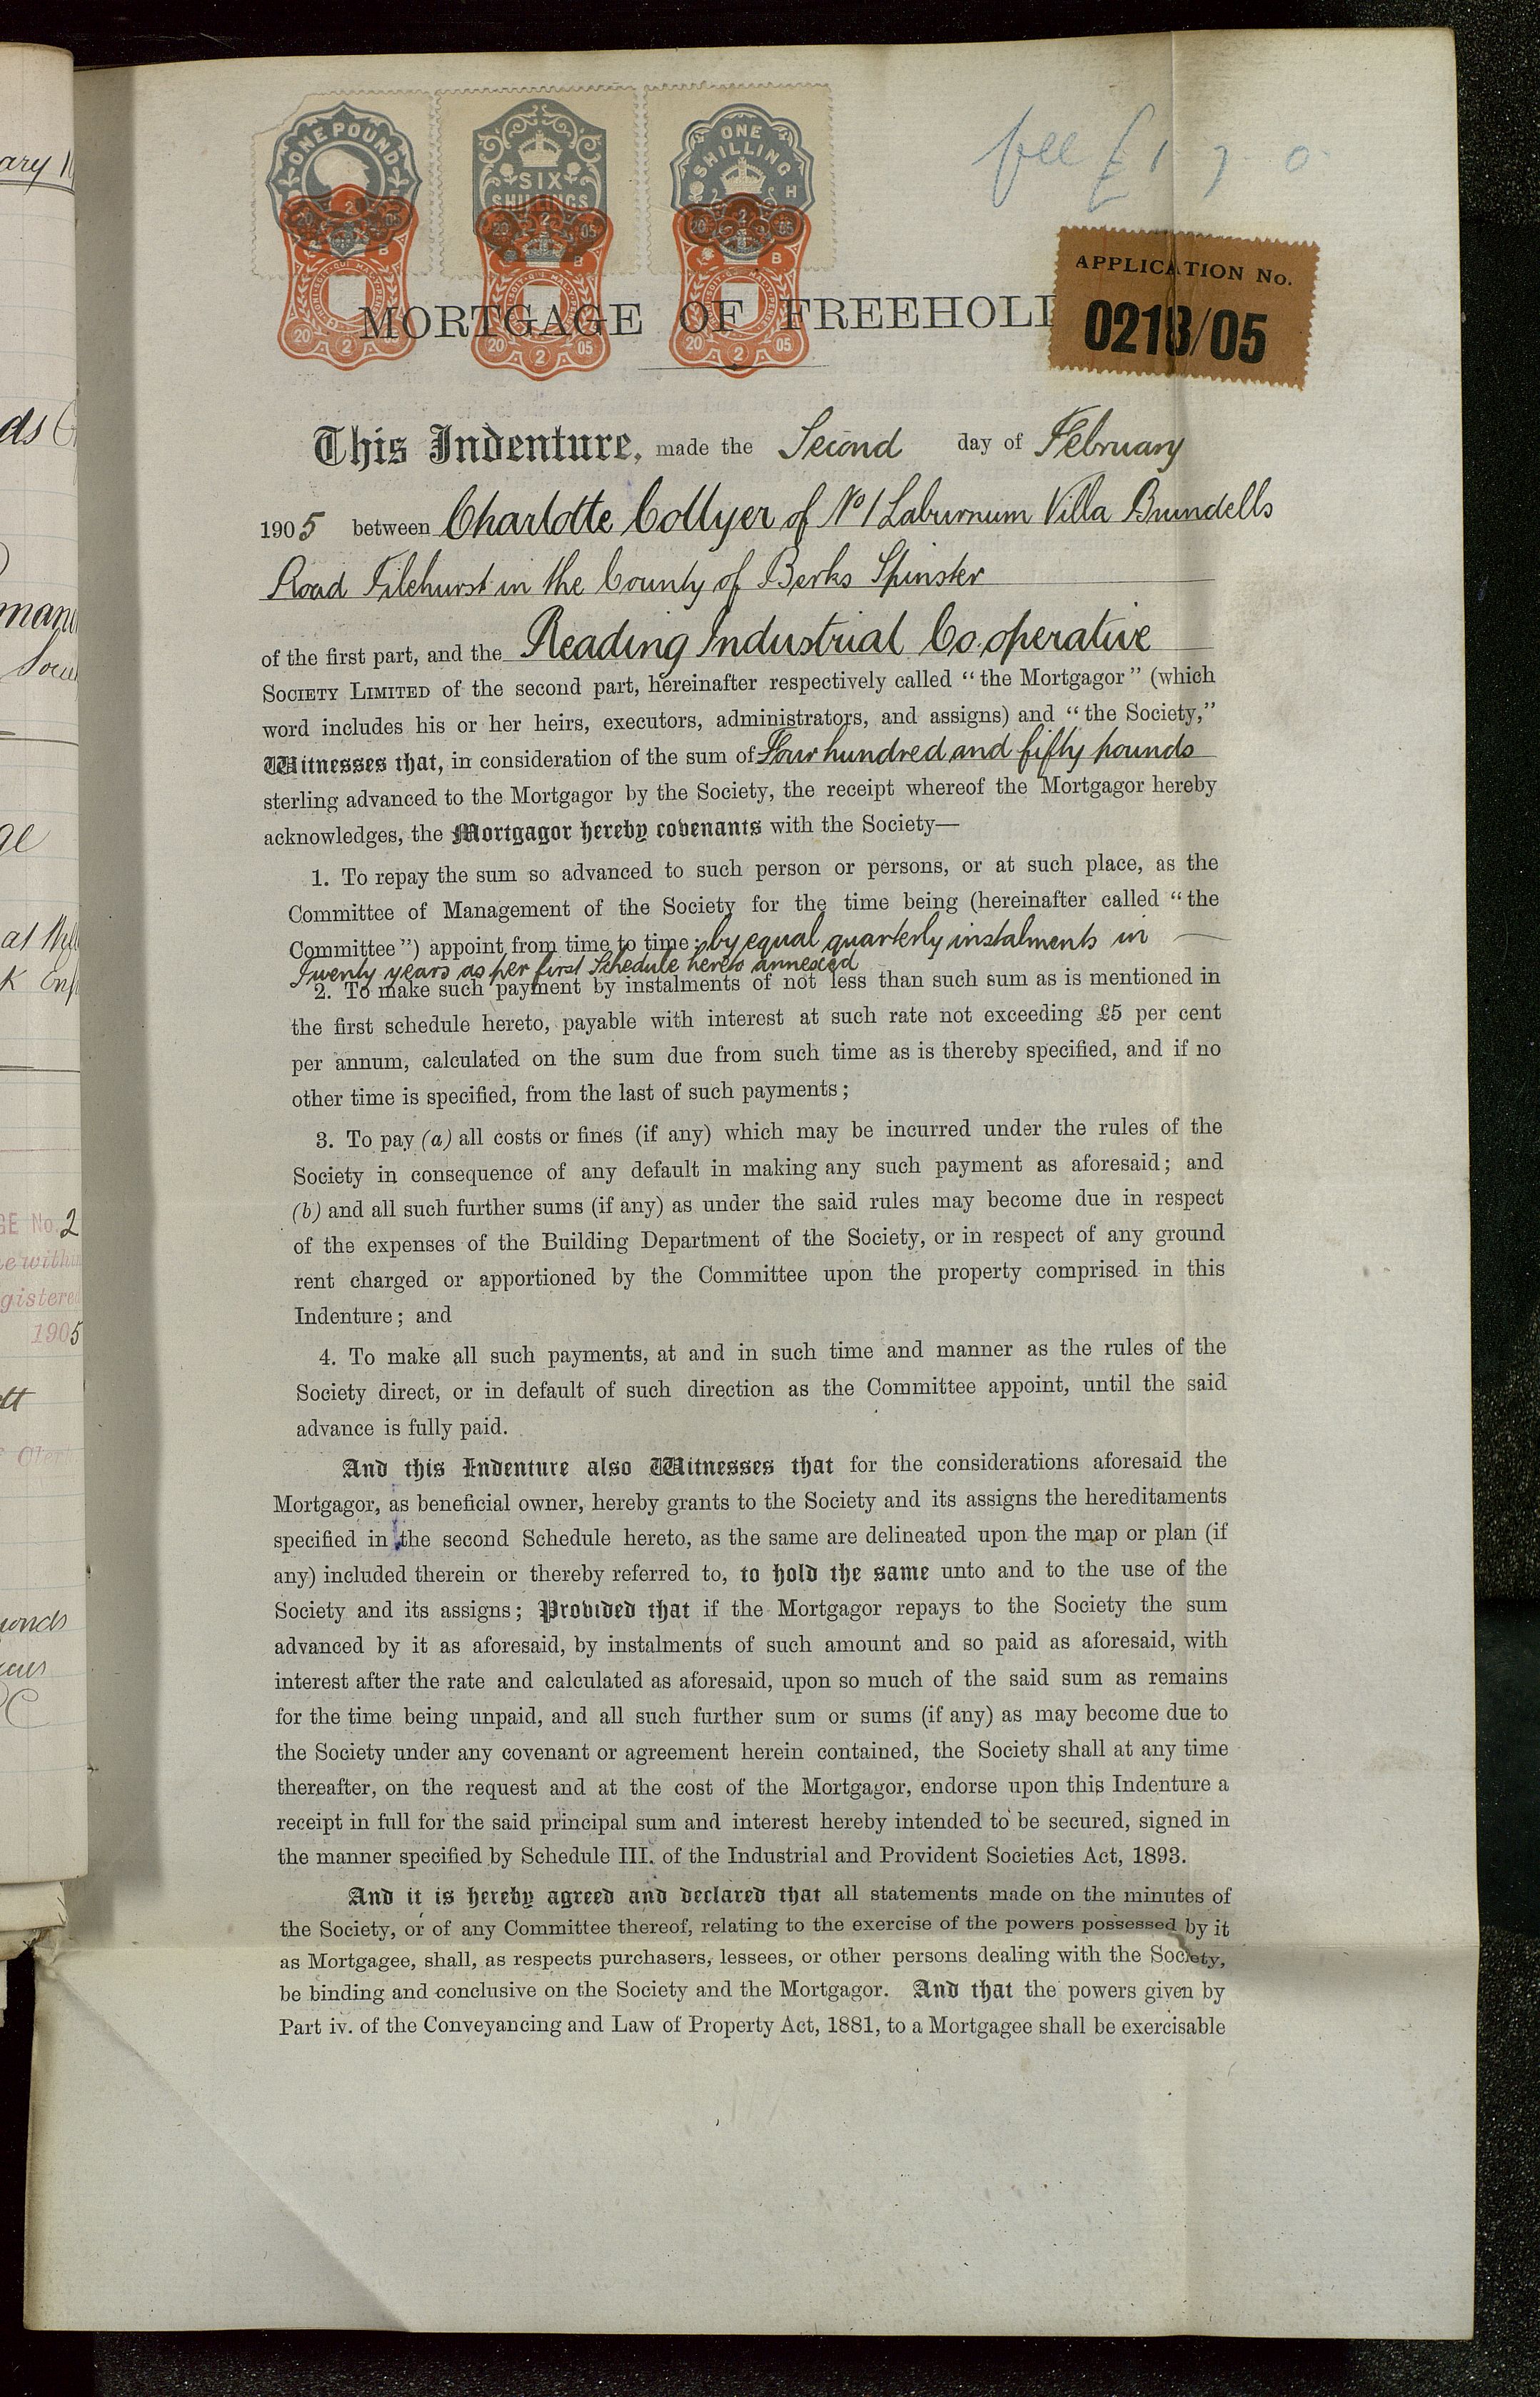 ary
ds
man
Soci
ge
at
K
GE No. 2
e within
gistered
1905
ett
Cler
onds
ONE POUND
SIX SHILLINGS
ONE SHILLING
20 2 05
20 2 05
20 2 05
B
B
B
H
HONI·SOIT·QUI·MAL·Y·PENSE
20 2
20 2 05
20 2 05
fee £1 7 0
APPLICATION No.
0218/05
MORTGAGE OF FREEHOL
This Indenture, made the Second day of February
1905 between Charlotte Collyer of No 1 Laburnum Villa Brundells
Road Tilehurst in the County of Berks Spinster
of the first part, and the Reading Industrial Co.operative
SOCIETY LIMITED of the second part, hereinafter respectively called "the Mortgagor" (which
word includes his or her heirs, executors, administrators, and assigns) and "the Society,"
Witnesses that, in consideration of the sum of Four hundred and fifty pounds
sterling advanced to the Mortgagor by the Society, the receipt whereof the Mortgagor hereby
acknowledges, the Mortgagor hereby covenants with the Society—
1. To repay the sum so advanced to such person or persons, or at such place, as the
Committee of Management of the Society for the time being (hereinafter called "the
Committee") appoint from time to time; by equal quarterly instalments in
Twenty years as per first Schedule hereto annexed
2. To make such payment by instalments of not less than such sum as is mentioned in
the first schedule hereto, payable with interest at such rate not exceeding £5 per cent
per annum, calculated on the sum due from such time as is thereby specified, and if no
other time is specified, from the last of such payments;
3. To pay (a) all costs or fines (if any) which may be incurred under the rules of the
Society in consequence of any default in making any such payment as aforesaid; and
(b) and all such further sums (if any) as under the said rules may become due in respect
of the expenses of the Building Department of the Society, or in respect of any ground
rent charged or apportioned by the Committee upon the property comprised in this
Indenture; and
4. To make all such payments, at and in such time and manner as the rules of the
Society direct, or in default of such direction as the Committee appoint, until the said
advance is fully paid.
And this Indenture also Witnesses that for the considerations aforesaid the
Mortgagor, as beneficial owner, hereby grants to the Society and its assigns the hereditaments
specified in the second Schedule hereto, as the same are delineated upon the map or plan (if
any) included therein or thereby referred to, to hold the same unto and to the use of the
Society and its assigns; Provided that if the Mortgagor repays to the Society the sum
advanced by it as aforesaid, by instalments of such amount and so paid as aforesaid, with
interest after the rate and calculated as aforesaid, upon so much of the said sum as remains
for the time being unpaid, and all such further sum or sums (if any) as may become due to
the Society under any covenant or agreement herein contained, the Society shall at any time
thereafter, on the request and at the cost of the Mortgagor, endorse upon this Indenture a
receipt in full for the said principal sum and interest hereby intended to be secured, signed in
the manner specified by Schedule III. of the Industrial and Provident Societies Act, 1893.
And it is hereby agreed and declared that all statements made on the minutes of
the Society, or of any Committee thereof, relating to the exercise of the powers possessed by it
as Mortgagee, shall, as respects purchasers, lessees, or other persons dealing with the Society,
be binding and conclusive on the Society and the Mortgagor. And that the powers given by
Part iv. of the Conveyancing and Law of Property Act, 1881, to a Mortgagee shall be exercisable